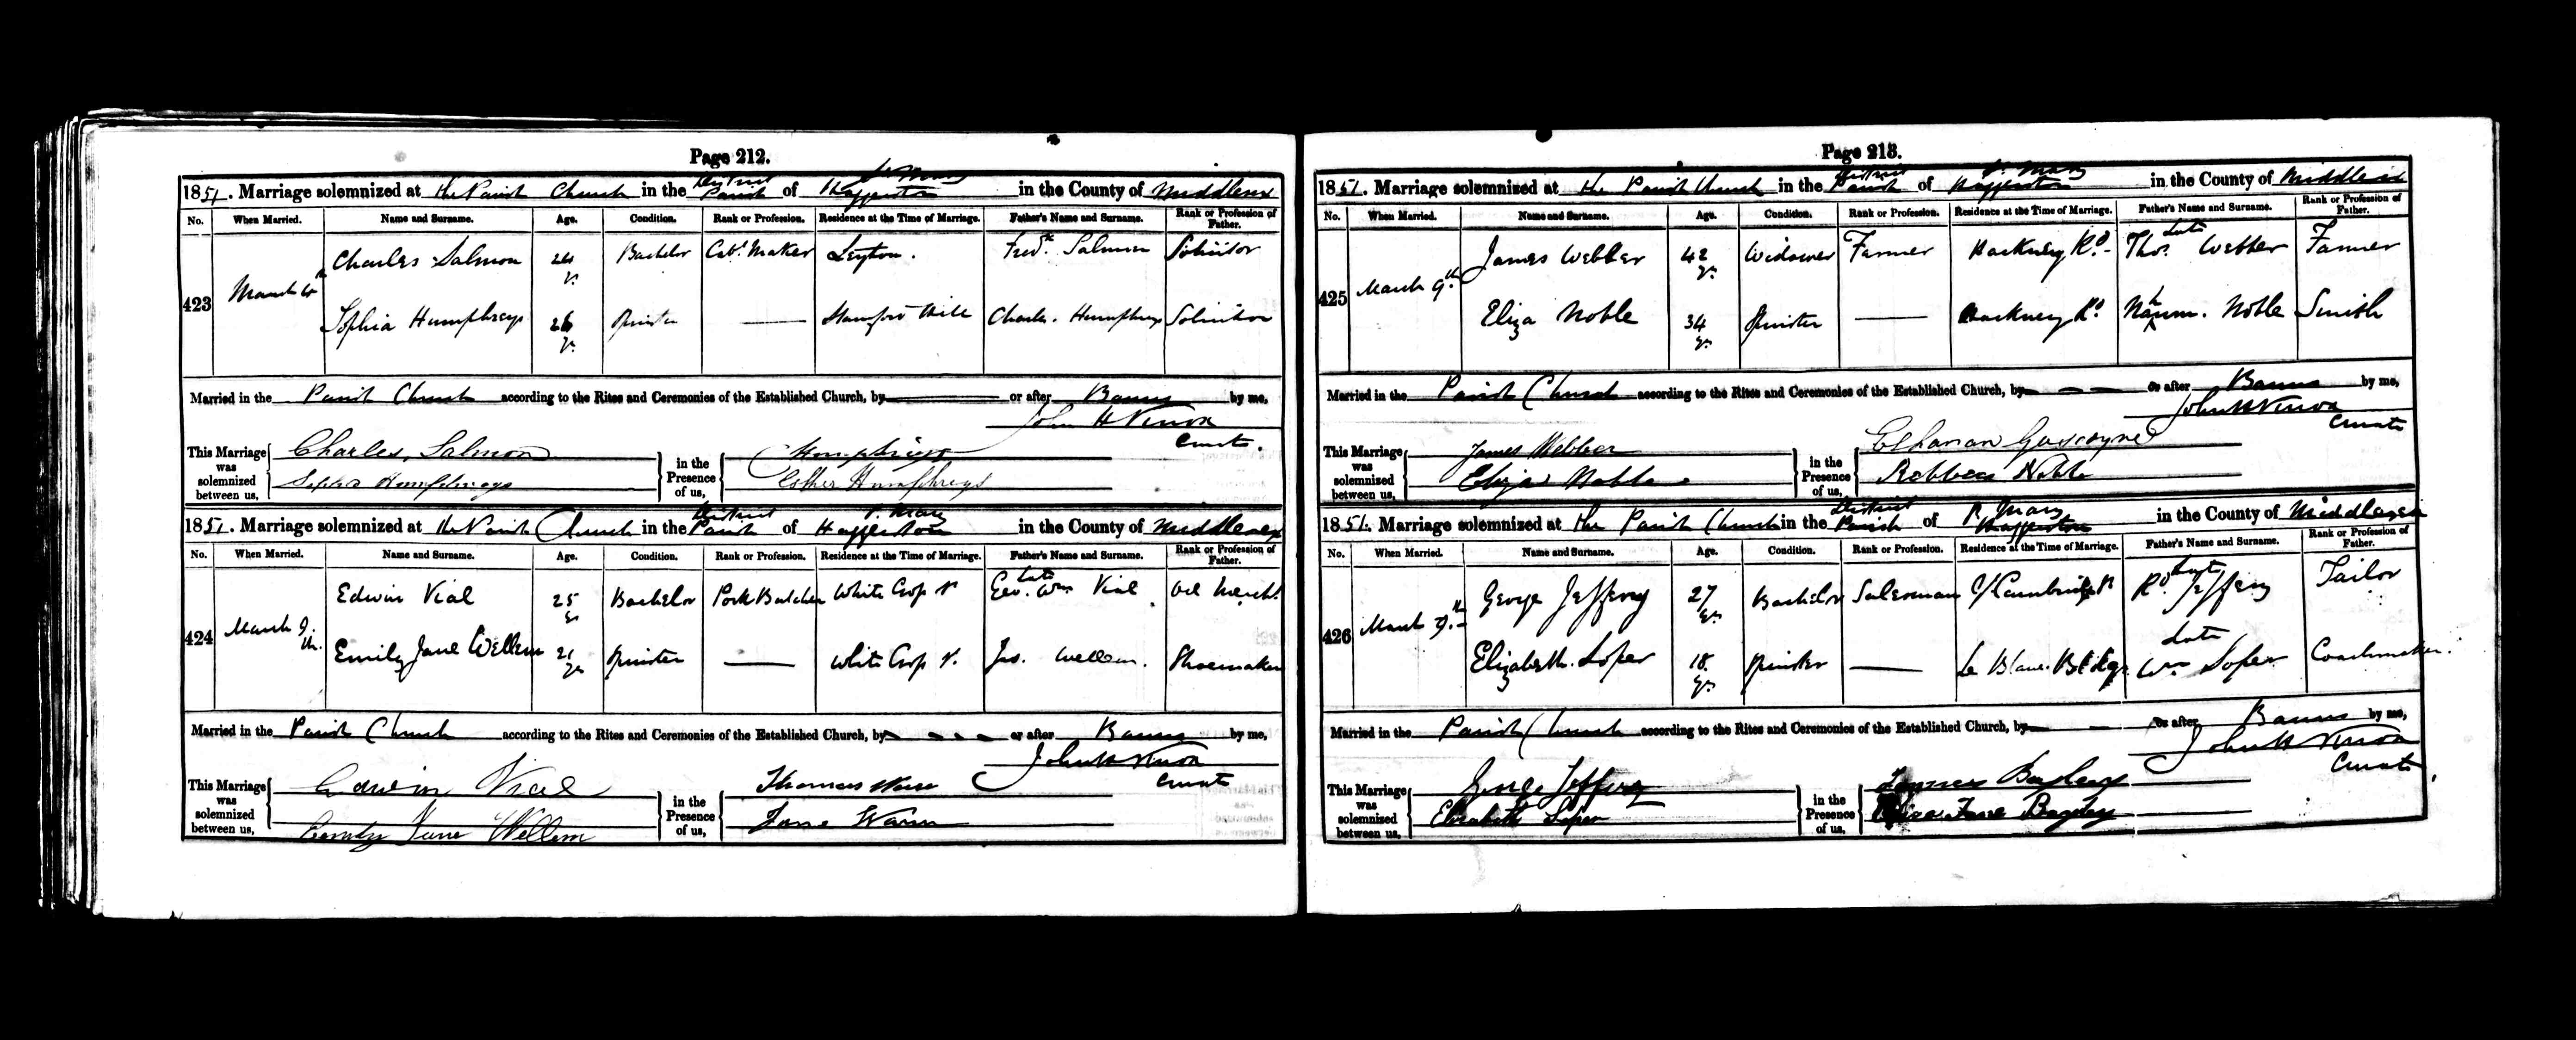 Page 212.
1851. Marriage solemnized at the Parish Church in the District Parish of St Mary Haggerston in the County of Middlesex
No. When Married. Name and Surname. Age. Condition. Rank or Profession. Residence at the Time of Marriage. Father's Name and Surname. Rank or Profession of Father.
423 March Charles Salmon 24 yrs Bachelor Cabt Maker Leyton. Fredk Salmon Solicitor
Sophia Humphreys 26 yrs Spinster — Stamford Hill Charles Humphreys Solicitor
Married in the Parish Church according to the Rites and Ceremonies of the Established Church, by — or after Banns by me,
John H Vernon
Curate.
This Marriage was solemnized between us, Charles Salmon
Sophia Humphreys
in the Presence of us, Humphreys
Esther Humphreys
1851. Marriage solemnized at the Parish Church in the District Parish of St Mary Haggerston in the County of Middlesex
No. When Married. Name and Surname. Age. Condition. Rank or Profession. Residence at the Time of Marriage. Father's Name and Surname. Rank or Profession of Father.
424 March 9th. Edwin Vial 25 yrs Bachelor Pork Butcher White Crop St Geo. Wm Vial late Oil Mercht.
Emily Jane Wellem 21 yrs Spinster — White Crop St. Jas. Wellem. Shoemaker
Married in the Parish Church according to the Rites and Ceremonies of the Established Church, by — or after Banns by me,
John H Vernon
Curate
This Marriage was solemnized between us, Edwin Vial
Emily Jane Wellem
in the Presence of us, Thomas
Jane
Page 213.
1851. Marriage solemnized at the Parish Church in the District Parish of St Mary Haggerston in the County of Middlesex
No. When Married. Name and Surname. Age. Condition. Rank or Profession. Residence at the Time of Marriage. Father's Name and Surname. Rank or Profession of Father.
425 March 9th James Webber 42 yrs Widower Farmer Hackney Rd. late Thos. Webber Farmer
Eliza Noble 34 yrs Spinster — Hackney Rd. Nahum. Noble Smith
Married in the Parish Church according to the Rites and Ceremonies of the Established Church, by — or after Banns by me,
John H Vernon
Curate
This Marriage was solemnized between us, James Webber
Eliza Noble
in the Presence of us, Elhanan Gascoyne
Rebbeca Noble
1851. Marriage solemnized at the Parish Church in the District Parish of St Mary Haggerston in the County of Middlesex
No. When Married. Name and Surname. Age. Condition. Rank or Profession. Residence at the Time of Marriage. Father's Name and Surname. Rank or Profession of Father.
426 March 9th. George Jeffery 27 yrs Bachelor Salesman Cambridge Rd late Rd. Jeffery Tailor
Elizabeth Loper 18 yrs Spinster — Le Blanc Bldgs late Wm Loper Coachmaker.
Married in the Parish Church according to the Rites and Ceremonies of the Established Church, by — or after Banns by me,
John H Vernon
Curate.
This Marriage was solemnized between us, George Jeffery
Elizabeth Loper
in the Presence of us, James Bagley
Jane Bagley